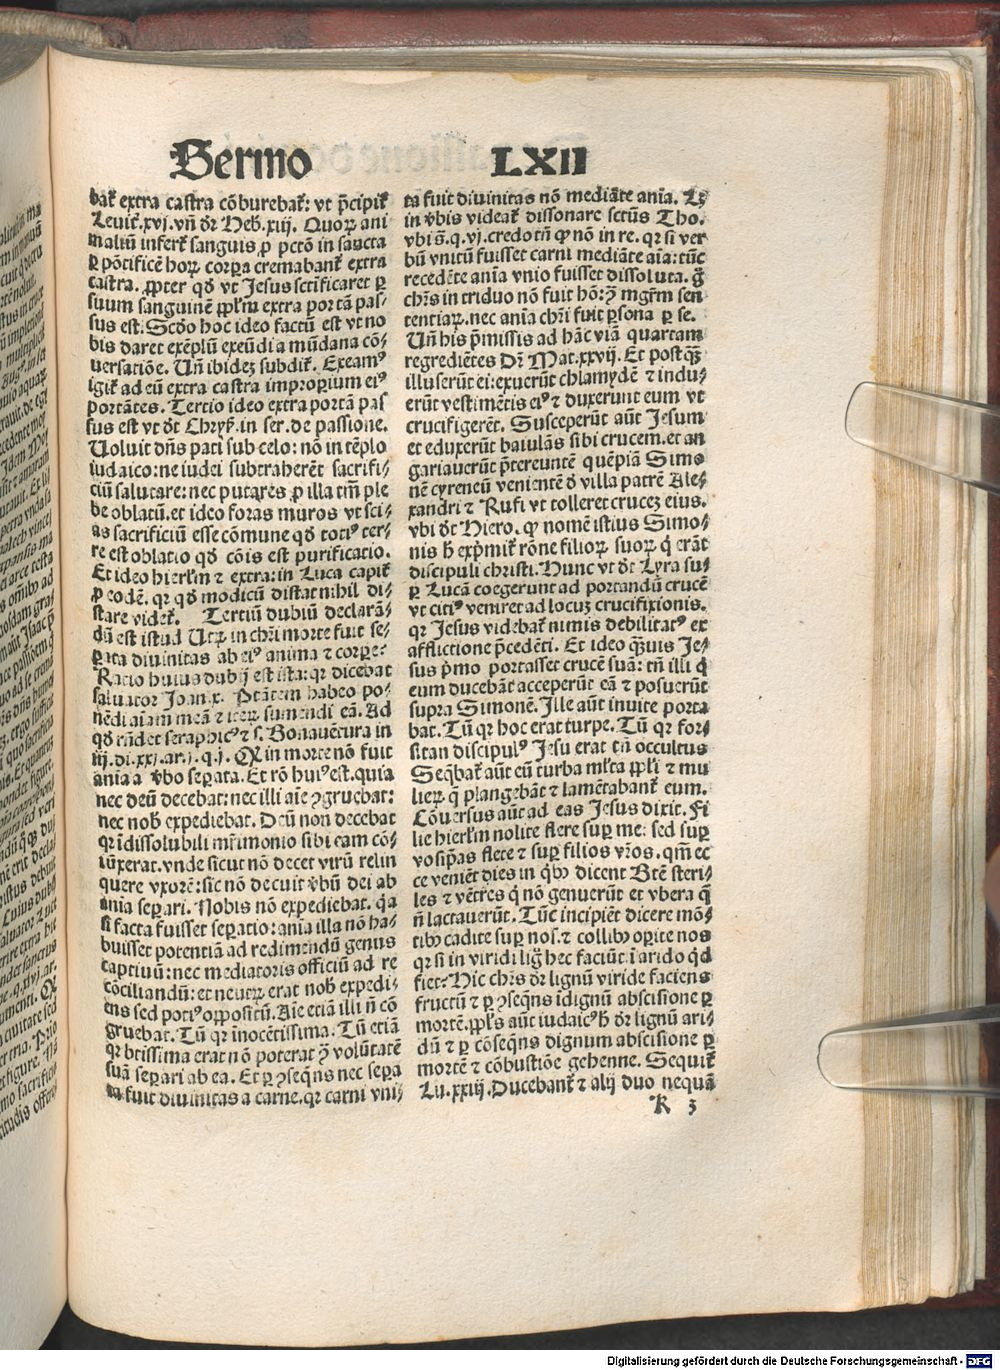 Sermo LXII
bat᷑ extra castra cõburebat᷑: vt p̃cipit᷑
Leuit᷑.xvj. vñ d᷑r Heb̃.xiij. Quoꝝ ani
maliũ infert᷑ sanguis ꝓ pctõ in sancta
ꝑ põtificẽ hoꝝ corꝑa cremabant᷑ extra
castra. ꝓpter qđ vt Jesus sctificaret ꝑ
suum sanguinẽ ppl̃m extra portã pas⸗
sus est. Scđo hoc ideo factũ est vt no
bis daret exẽplũ exeũdi a mũdana cõ⸗
uersatiõe. Uñ ibidez subdit᷑. Exeamꝰ
igit᷑ ad eũ extra castra improꝑium eiꝰ
portãtes. Tertio ideo extra portã pas
sus est vt d̃t Chryß. in ser. de passione.
Uoluit dñs pati sub celo: nõ in tẽplo
iudaico: ne iudei subtraherẽt sacrifi⸗
ciũ salutare: nec putares ꝓ illa tm̃ ple
be oblatũ. et ideo foras muros vt sci⸗
as sacrificiũ esse cõmune qđ totiꝰ ter⸗
re est oblatio qđ cõis est purificatio.
Et ideo hierl̃m ⁊ extra: in Luca capit᷑
ꝓ eodẽ. qꝛ qđ modicũ distat nihil di⸗
stare videt᷑. Tertiũ dubiũ declarã⸗
dũ est istud Utꝝ in chr̃i morte fuit se⸗
ꝑata diuinitas ab eiꝰ anima ⁊ corpe?
Ratio huius dubij est ista: qꝛ dicebat
saluator Joan.x. Ptãtem habeo po⸗
nẽdi aĩam meã ⁊ iteꝝ sumendi eã. Ad
qđ rñdet seraphicꝰ ⁊ s. Bonauẽtura in
iij. di. xxj. ar. j. q. j. Ꝙ in morte nõ fuit
anĩa a v̾bo seꝑata. Et rõ huiꝰ est. quia
nec deũ decebat: nec illi aĩe ꝯgruebat:
nec nob̃ expediebat. Deũ non decebat
qꝛ ĩdissolubili mr̃imonio sibi eam cõ⸗
iũxerat. vnde sicut nõ decet virũ relin
quere vxorẽ: sic nõ decuit v̾bũ dei ab
anĩa seꝑari. Nobis nõ expediebat. qꝛ
si facta fuisset seꝑatio: anĩa illa nõ ha⸗
buisset potentiã ad redimendũ genus
captiuũ: nec mediatoris officiũ ad re
cõciliandũ: et neutꝝ erat nob̃ expedi⸗
ens sed potiꝰ oppositũ. Aĩe etiã illi nõ cõ
gruebat. Tũ qꝛ inocẽtissima. Tũ etiã
qꝛ btissima erat nõ poterat ꝯ̃ volũtatẽ
suã seꝑari ab ea. Et ꝑ ꝯseq̃ns nec seꝑa
ta fuit diuinitas a carne. qꝛ carni vni⸗
ta fuit diuinitas nõ mediãte anĩa. Lꝫ
in v̾bis videat᷑ dissonare sctũs Tho.
vbi s̃. q. vj. credo tñ ꝙ nõ in re. qꝛ si ver
bũ vnitũ fuisset carni mediãte aĩa: tũc
recedẽte anĩa vnio fuisset dissoluta. g̃
chr̃s in triduo nõ fuit hõ: ꝯ̃ mgr̃m sen
tentiaꝝ. nec anĩa chr̃i fuit ꝑsona ꝑ se.
Uñ his p̃missis ad hãc viã quartam
regrediẽtes D᷑r Mat. xxvij. Et postꝙ̃
illuserũt ei: exuerũt chlamydẽ ⁊ indu⸗
erũt vestimẽtis eiꝰ ⁊ duxerunt eum vt
crucifigerẽt. Susceperũt aũt Jesum
et eduxerũt baiulãs sibi crucem. et an
gariauerũt p̃tereuntẽ quẽpiã Simo
nẽ cyreneũ venientẽ đ villa patrẽ Ale⸗
xandri ⁊ Rufi vt tolleret crucez eius.
vbi d̃t Hiero. ꝙ nomẽ istius Simo⸗
nis h̃ exp̃mit᷑ rõne filioꝝ suoꝝ q̃ erãt
discipuli christi. Nunc vt d̃t Lyra su⸗
ꝑ Lucã coegerunt ad portandũ crucẽ
vt citiꝰ veniret ad locuz crucifixionis.
qꝛ Jesus videbat᷑ nimis debilitatꝰ ex
afflictione p̃cedẽti. Et ideo q̃uis Je⸗
sus p̃mo portasset crucẽ suã: tñ illi q̃
eum ducebãt acceperũt eã ⁊ posuerũt
supra Simonẽ. Ille aũt inuite porta
bat. Tũ qꝛ hoc erat turpe. Tũ qꝛ for⸗
sitan discipulꝰ Jesu erat tñ occultus
Seq̃bat᷑ aũt eũ turba ml̃ta ppl̃i ⁊ mu
lieꝝ q̃ plangebãt ⁊ lamẽtabant᷑ eum.
Cõuersus aũt ad eas Jesus dixit. Fi
lie hierl̃m nolite flere suꝑ me: sed suꝑ
vosip̃as flete ⁊ suꝑ filios vr̃os. qm̃ ec
ce veniẽt dies in qͥbꝰ dicent Btẽ steri⸗
les ⁊ vẽtres q̃ nõ genuerũt et vbera q̃
ñ lactauerũt. Tũc incipiẽt dicere mõ⸗
tibꝰ cadite suꝑ nos. ⁊ collibꝰ oꝑite nos
qꝛ si in viridi lig̃ hec faciũt: ĩ arido qͥd
fiet? Hic chr̃s d᷑r lignũ viride faciens
fructũ ⁊ ꝑ ꝯseq̃ns ĩdignũ abscisione ꝑ
mortẽ. ppl̃s aũt iudaicꝰ h̃ d᷑r lignũ ari⸗
dũ ⁊ ꝑ cõseq̃ns dignum abscisione ꝑ
mortẽ ⁊ cõbustiõe gehenne. Sequit᷑
Lu. xxiij. Ducebant᷑ ⁊ alij duo nequã
K 3
Digitalisierung gefördert durch die Deutsche Forschungsgemeinschaft - DFG